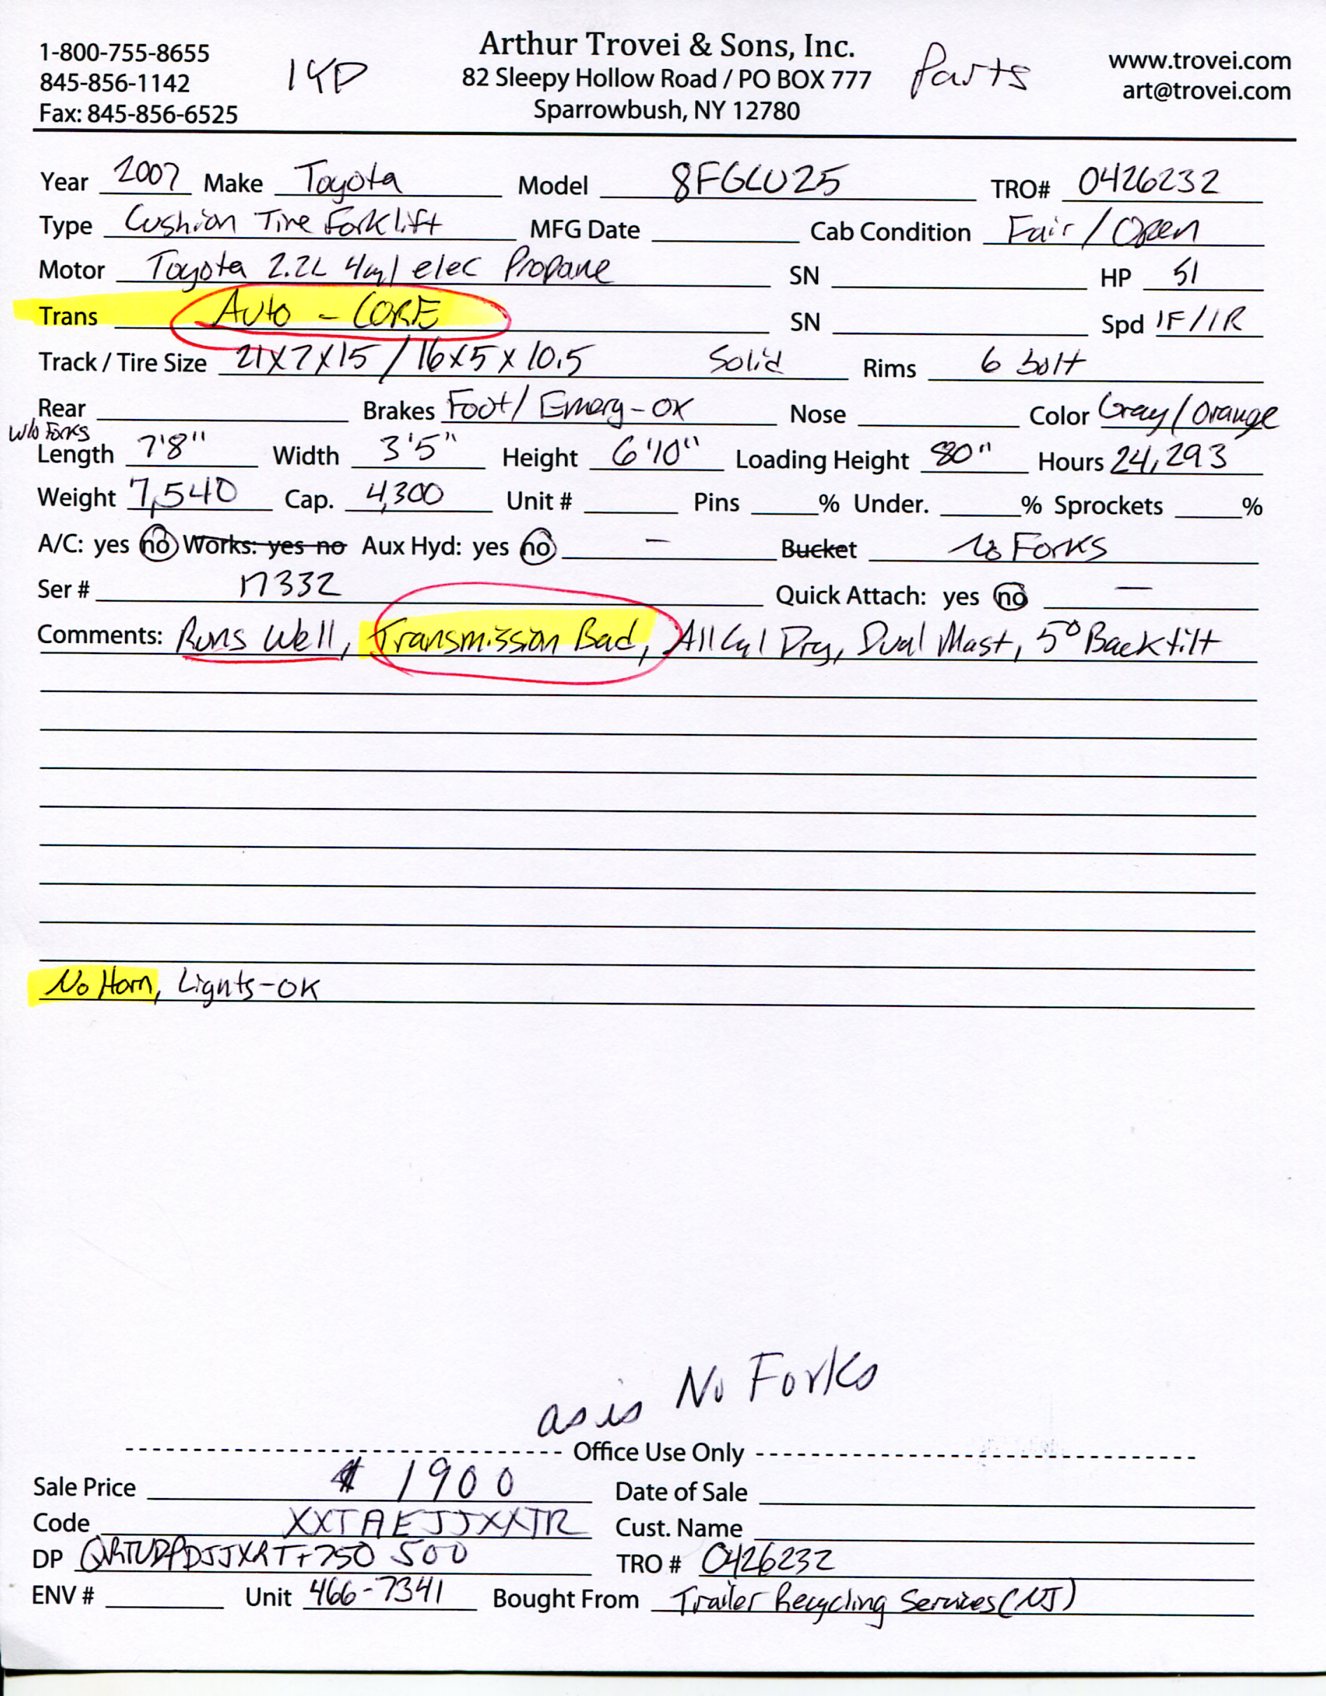 1-800-755-8655
845-856-1142
Fax: 845-856-6525
Arthur Trovei & Sons, Inc.
82 Sleepy Hollow Road / PO BOX 777
Sparrowbush, NY 12780
Parts
www.trovei.com
art@trovei.com
Year 2007 Make Toyota Model 8FGCU25 TRO# 0426232
Type Cushion Tire Forklift MFG Date Cab Condition Fair / Open
Motor Toyota 2.2L 4cyl elec Propane SN HP 51
Trans Auto - CORE SN Spd 1F/1R
Track / Tire Size 21x7x15 / 16x5x10.5 Solid Rims 6 bolt
Rear Brakes Foot/ Emerg-OK Nose Color Gray/Orange
w/o Forks
Length 7'8" Width 3'5" Height 6'10" Loading Height 80" Hours 24,293
Weight 7,540 Cap. 4,300 Unit # Pins % Under. % Sprockets %
A/C: yes no Works: yes no Aux Hyd: yes no - Bucket No Forks
Ser # 17332 Quick Attach: yes no -
Comments: Runs Well, Transmission Bad, All Cyl Dry, Dual Mast, 5° Back tilt
No Horn, Lights-OK
as is No Forks
Office Use Only
Sale Price $1900 Date of Sale
Code XXTAEJJXXTR Cust. Name
DP +750 500 TRO # 0426232
ENV # Unit 466-7341 Bought From Trailer Recycling Services (NJ)